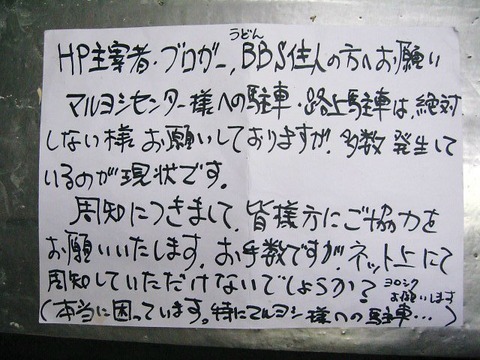 うどん
HP主宰者・ブロガー、BBS住人の方へお願い
マルヨシセンター様への駐車・路上駐車は、絶対
しない様お願いしておりますが、多数発生して
いるのが現状です。
周知につきまして、皆様方にご協力を
お願いいたします。お手数ですが、ネット上にて
周知していただけないでしょうか？ヨロシク
お願いします
（本当に困っています。特にマルヨシ様への駐車…）